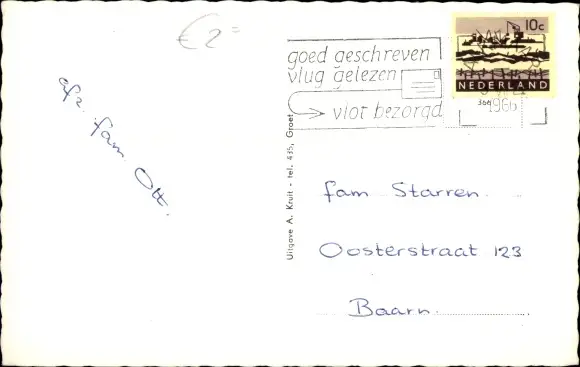 € 2=
10c
NEDERLAND
goed geschreven
vlug gelezen
vlot bezorgd
1966
afz. fam Ott.
Uitgave A. Kruit - tel. 435, Groet
fam Starren.
Oosterstraat 123
Baarn.